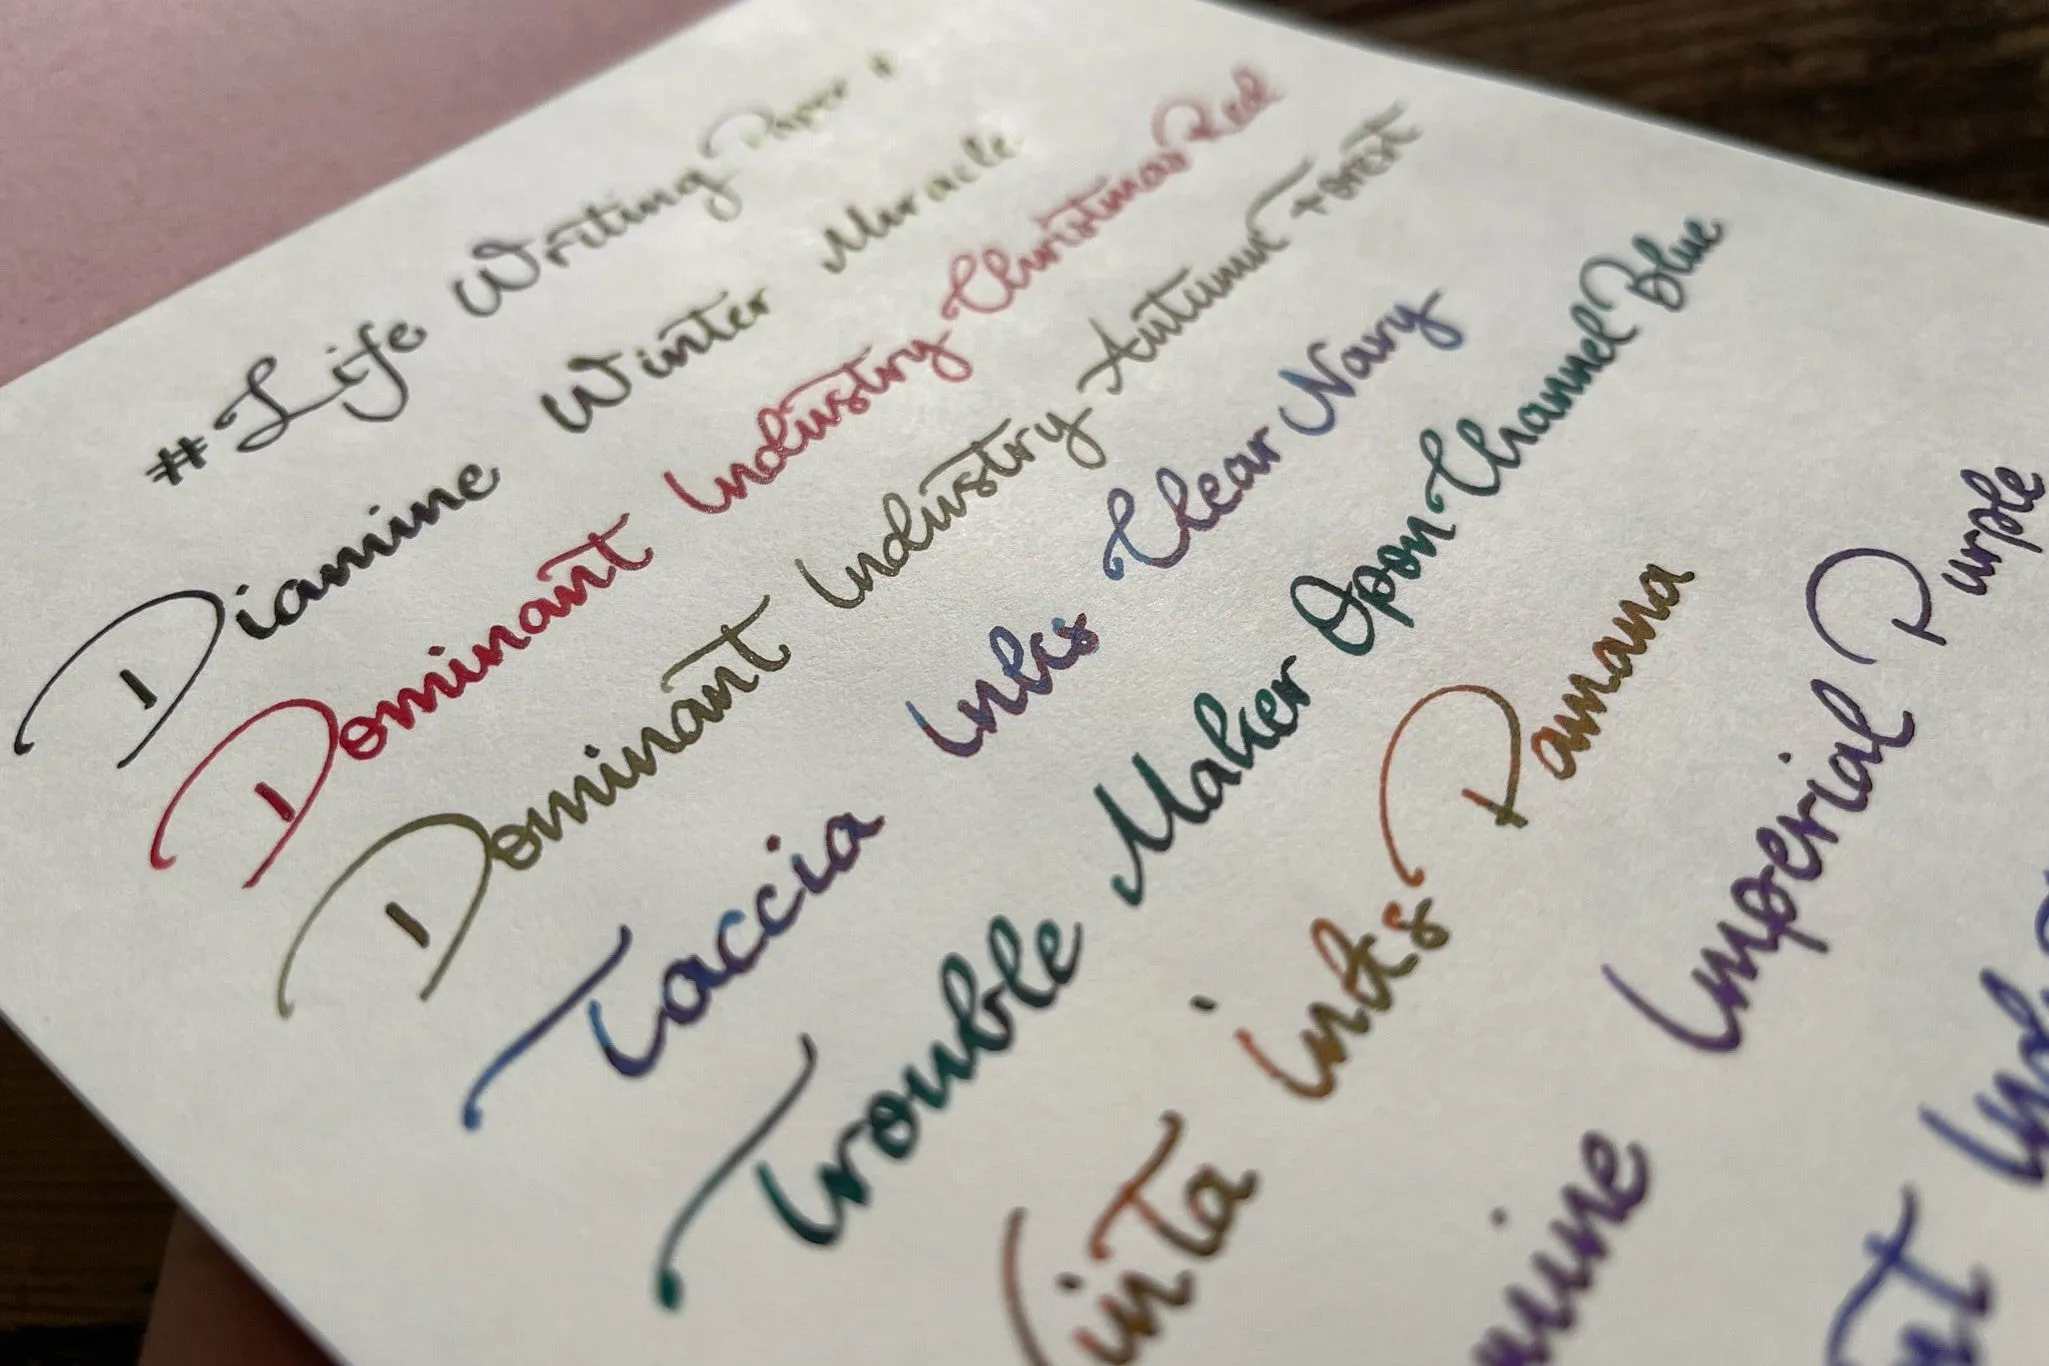 # Life Writing Paper #
Diamine Winter Miracle
Dominant Industry Christmas Red
Dominant Industry Autumn Forest
Taccia Inks Clear Navy
Trouble Maker Opon Channel Blue
inta inks Panama
mine Imperial Purple
nt Indu